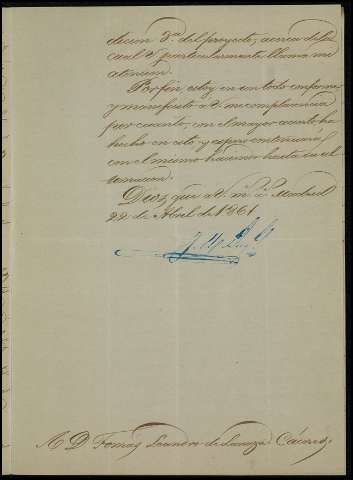 dicion 3ª del proyecto, acerca de la
cual particularmente llama mi
atencion.
Por fin, estoy en un todo conforme
y manifiesto a V. mi complacencia
por cuanto, con el mayor acierto, ha
hecho en esto, y espero continuará
con el mismo hasta su ul-
timacion.
Dios que a V. m. a. Madrid
22 de Abril de 1861
A D Tomas Leandro de Lanuza. Cáceres